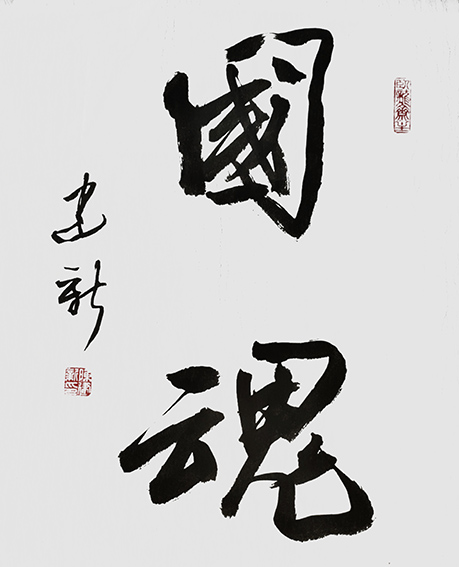 國魂
建新